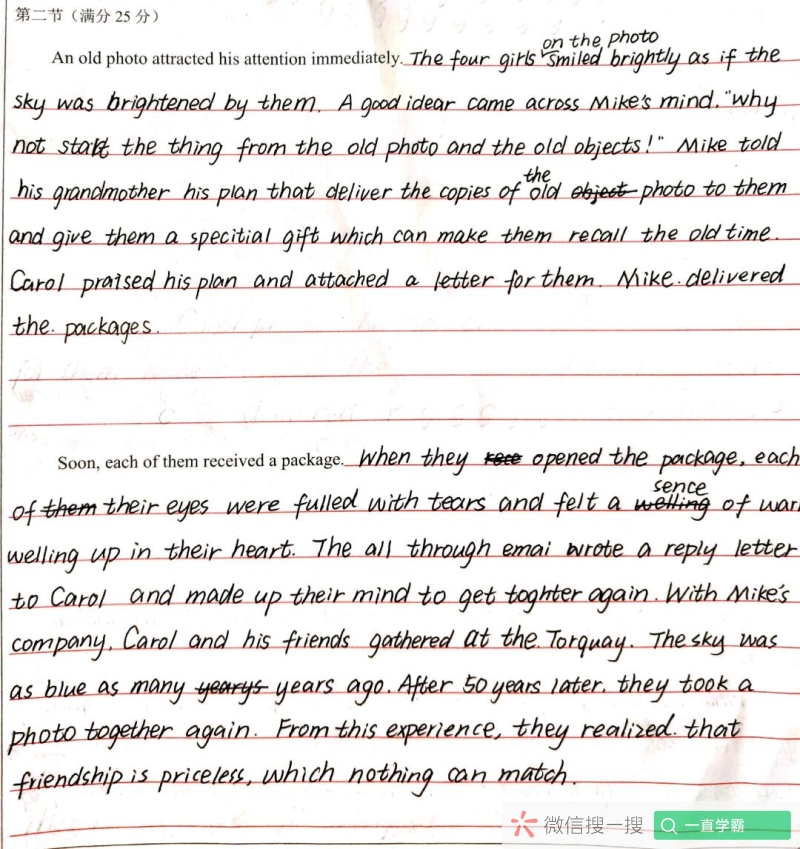 第二节（满分 25 分）
on the photo
An old photo attracted his attention immediately. The four girls smiled brightly as if the
sky was brightened by them. A good idear came across Mike's mind. "why
not start the thing from the old photo and the old objects!" Mike told
the
his grandmother his plan that deliver the copies of old object photo to them
and give them a specitial gift which can make them recall the old time.
Carol praised his plan and attached a letter for them. Mike. delivered
the. packages.
Soon, each of them received a package. When they opened the package, each
sence
of them their eyes were fulled with tears and felt a welling of war
welling up in their heart. The all through emai wrote a reply letter
to Carol and made up their mind to get toghter again. With Mike's
company, Carol and his friends gathered at the. Torquay. The sky was
as blue as many yearys years ago. After 50 years later. they took a
photo together again. From this experience, they realized. that
friendship is priceless, which nothing can match.
微信搜一搜 一直学霸